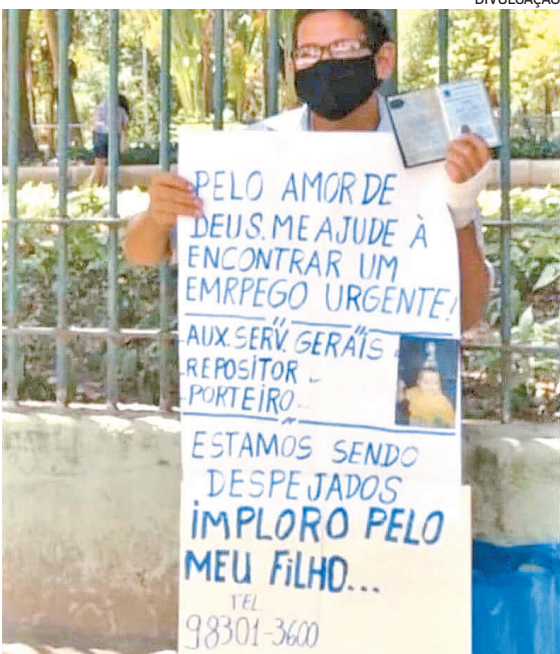 DIVULGAÇÃO
PELO AMOR DE
DEUS. ME AJUDE À
ENCONTRAR UM
EMRPEGO URGENTE!
AUX. SERV. GERAIS
REPOSITOR
PORTEIRO
ESTAMOS SENDO
DESPEJADOS
IMPLORO PELO
MEU FILHO...
TEL
98301-3600